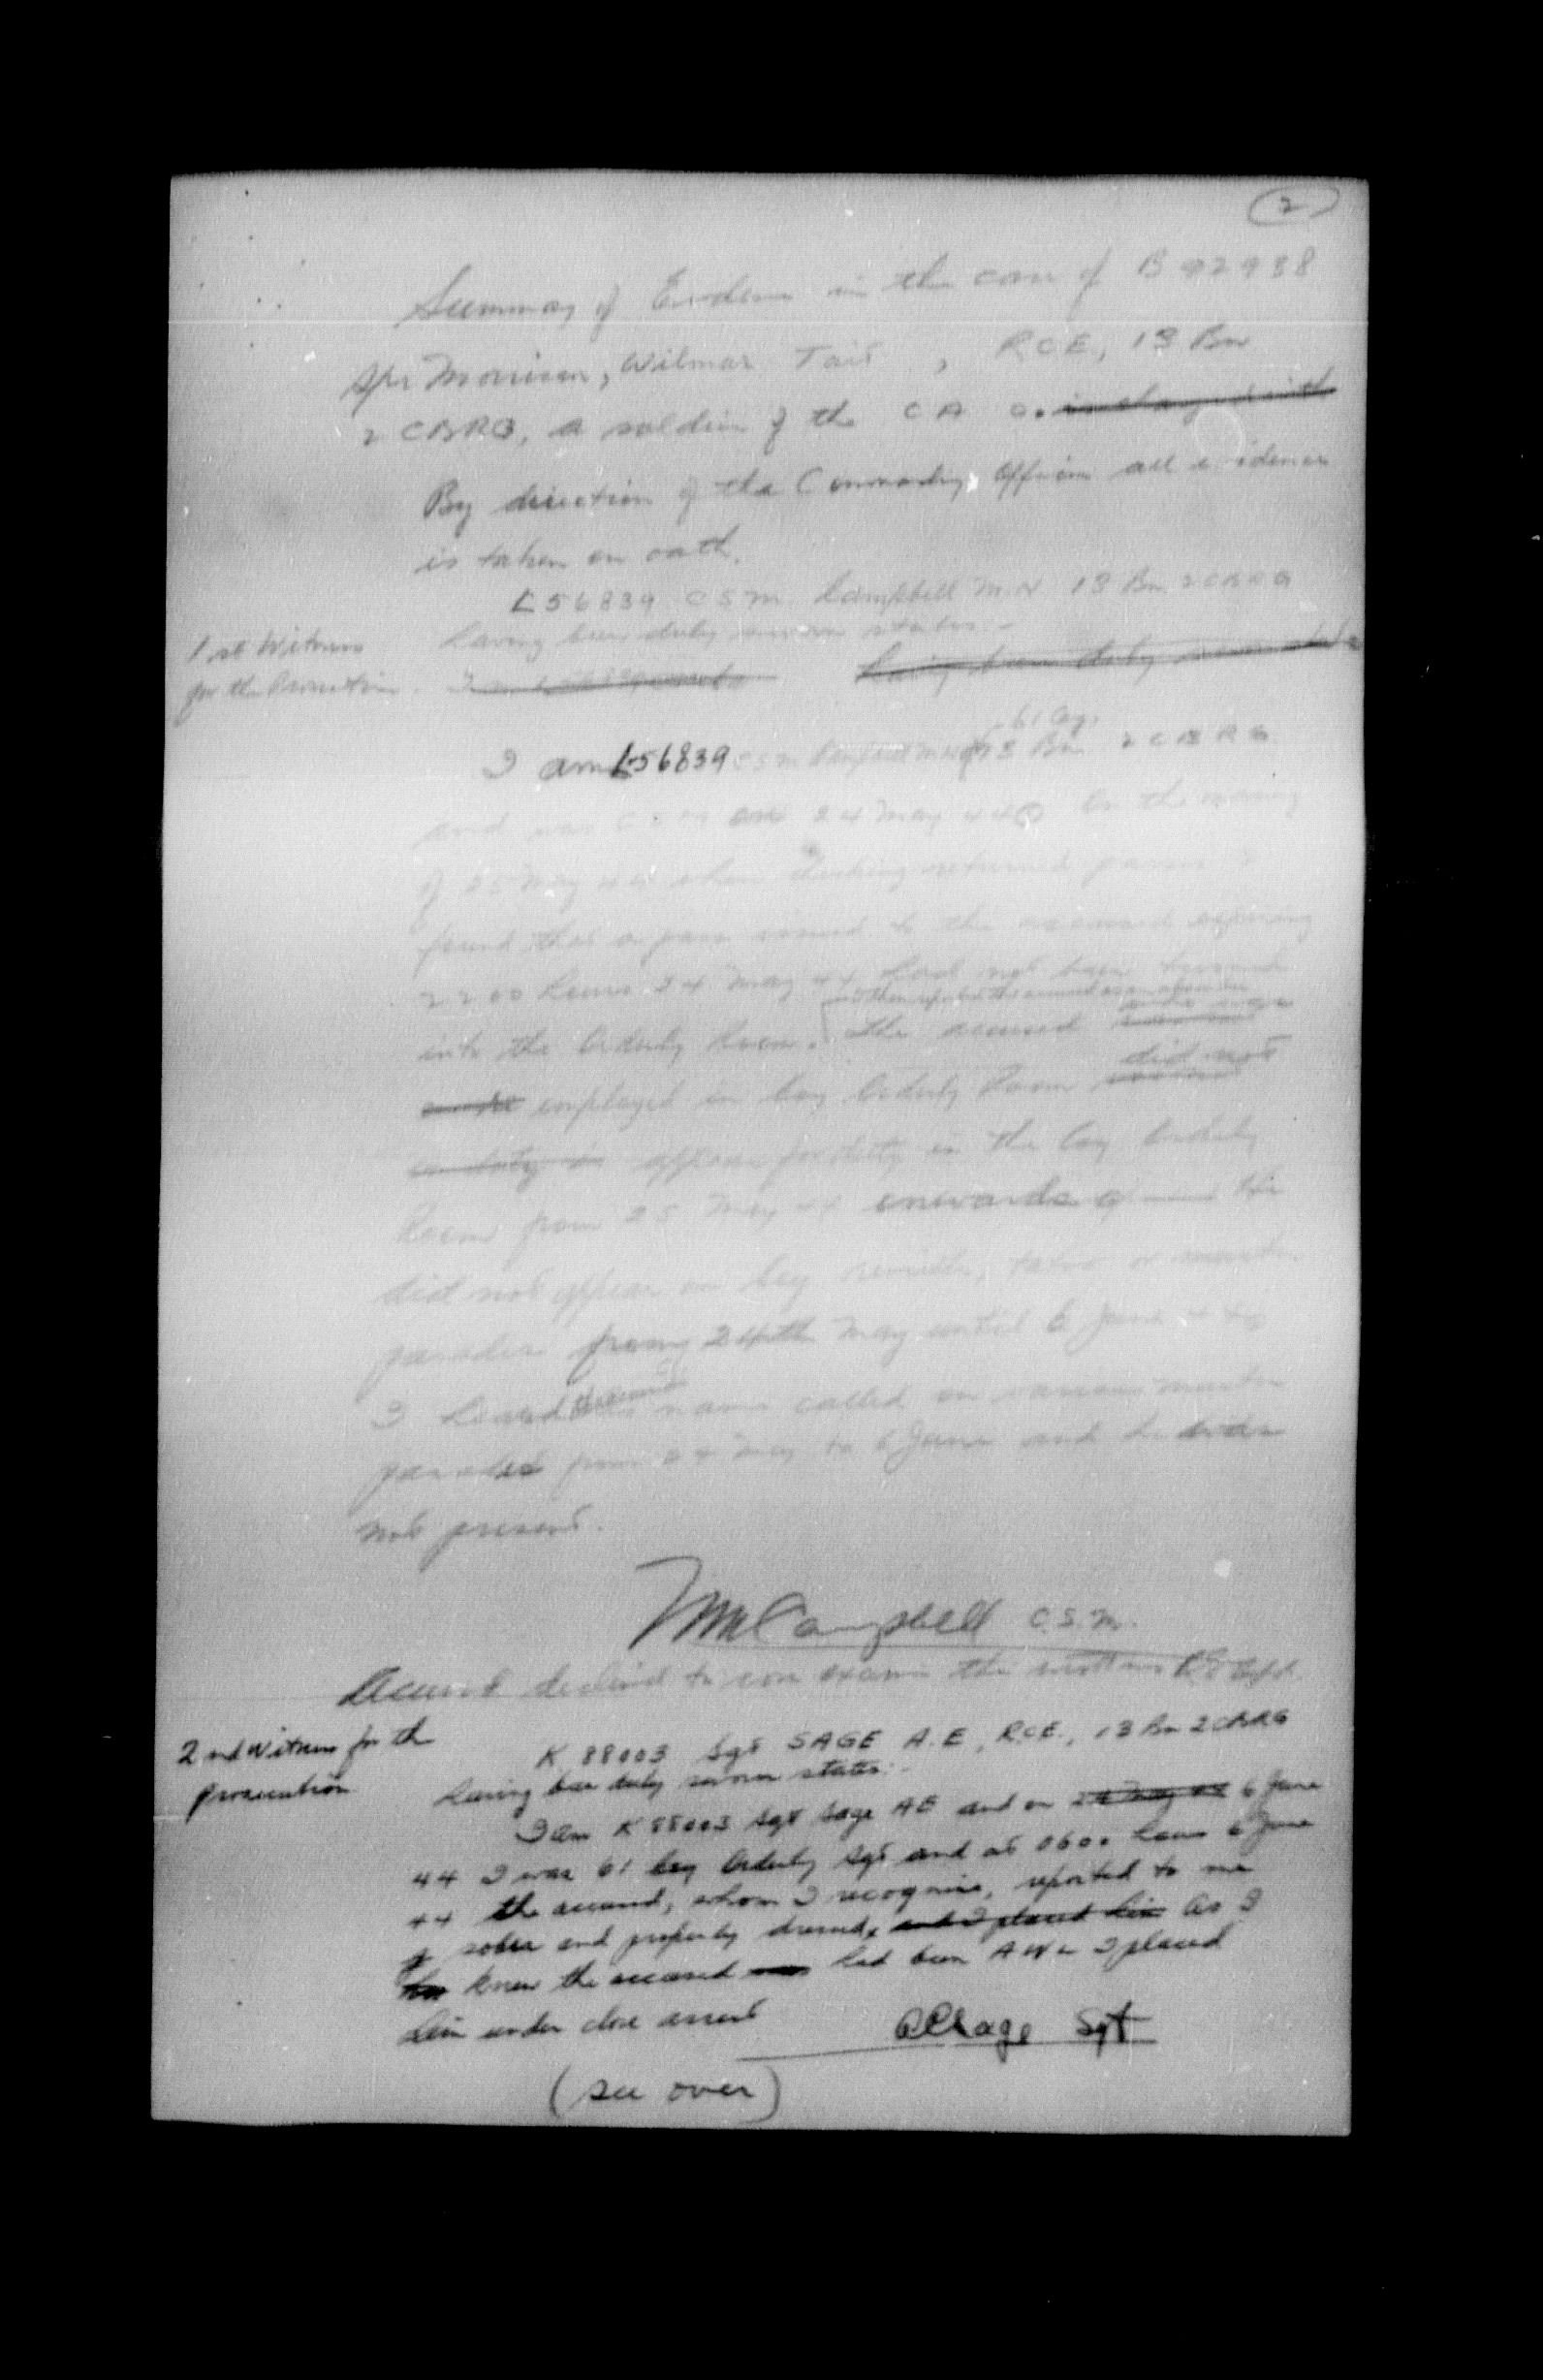 (2)
Summary of Evidence in the case of B 92938
Spr Morrison, Wilmar Tait, RCE, 13 Bn
2 CBRG, a soldier of the CA O. is charged with
By direction of the Commanding Officer all evidence
is taken on oath.
L56839 CSM Campbell M.N 13 Bn 2 CBRG
1st Witness
for the Prosecution
having been duly sworn states:-
having been duly sworn states
61 Coy,
I am L56839 CSM Campbell M N of 13 Bn 2 CBRG
and was CSM on 24 May 44 On the morning
of 25 May 44 when checking returned passes I
found that a pass issued to the accused expiring
2200 hours 24 May 44 had not been turned
I then reported the accused as an absentee
into the Orderly Room. The accused who was
did not
employed in Coy Orderly Room
on duty in appear for duty in the Coy Orderly
Room from 25 May 44 onwards He
did not appear on Coy reveille, tatoo or muster
parades from 24th May until 6 June 44
the accused's
I heard name called on various muster
parades from 24 May to 6 June and he was
not present.
MN Campbell C.S.M.
Accused declined to cross examine the witness
2nd Witness for the
prosecution
K 88003 Sgt SAGE A.E, RCE., 13 Bn 2 CBRG
having been duly sworn states:-
I am K 88003 Sgt Sage AE and on 24 May 44 6 June
44 I was 61 Coy Orderly Sgt and at 0600 hours 6 June
44 the accused, whom I recognise, reported to me
sober and properly dressed, and I placed him As I
knew the accused was had been AWL I placed
him under close arrest
AE Sage Sgt
(see over)